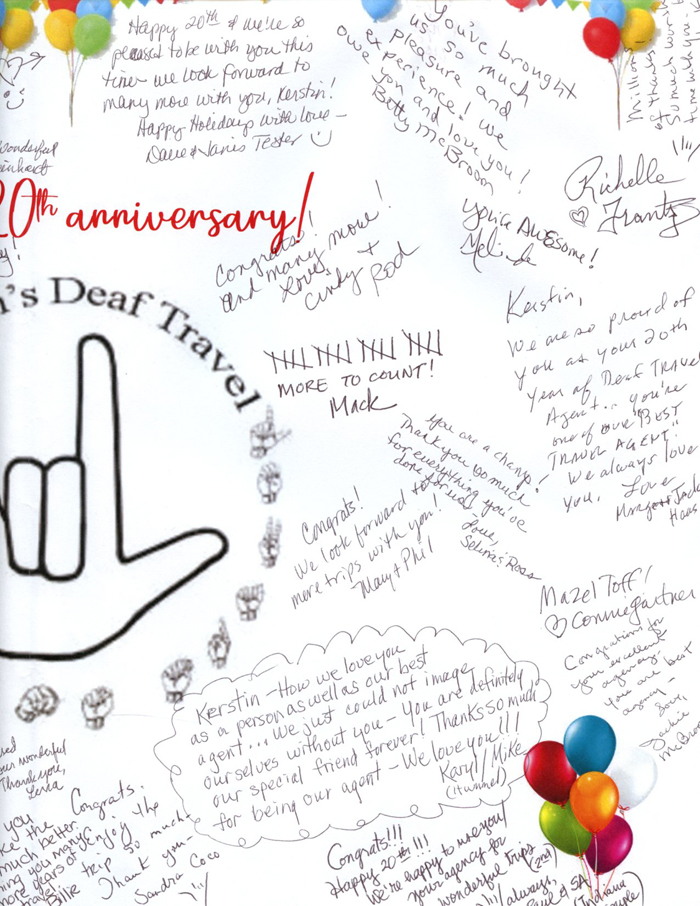 Happy 20th & we're so
pleased to be with you this
time we look forward to
many more with you, Kerstin!
Happy Holidays with love –
Dave & Janis Tester
You've brought
us so much
pleasure and
experience! We
owe you and love you!
Betty McBroom
Millions
of thanks!
so much work
Richelle
Frantz
You're AWESome!
Melinda
wonderful
20th anniversary!
Congrats!
and many more!
Love,
Cindy + Rod
n's Deaf Travel
MORE TO COUNT!
Mack
Kerstin,
We are so proud of
you as your 20th
year of Deaf Travel
Agent... you're
one of our "BEST
TRAVEL AGENT".
We always love
you. Love
Haas
You are a champ!
Thank you so much
for everything you've
done for us
Love,
Congrats!
We look forward to
more trips with you!
Mary + Phil
Mazel Toff!
Connie Gartner
Congratulations for
your excellent
agency.
You are best
agency –
Love,
Jackie
McBroom
Kerstin – How we love you
as a person as well as our best
agent... we just could not image
ourselves without you – You are definitely
our special friend forever! Thanks so much
for being our agent – We love you!!!
Karyl / Mike
(Hummel)
our wonderful
Thank you,
Congrats.
enjoy the
trip so much –
Thank you –
Sandra Coco
you
the
much better.
you many
more years of
travel
Billie
Congrats!!!
Happy 20th!!!
We're happy to use you/
your agency for
wonderful trips
(2nd)
always,
(Indiana